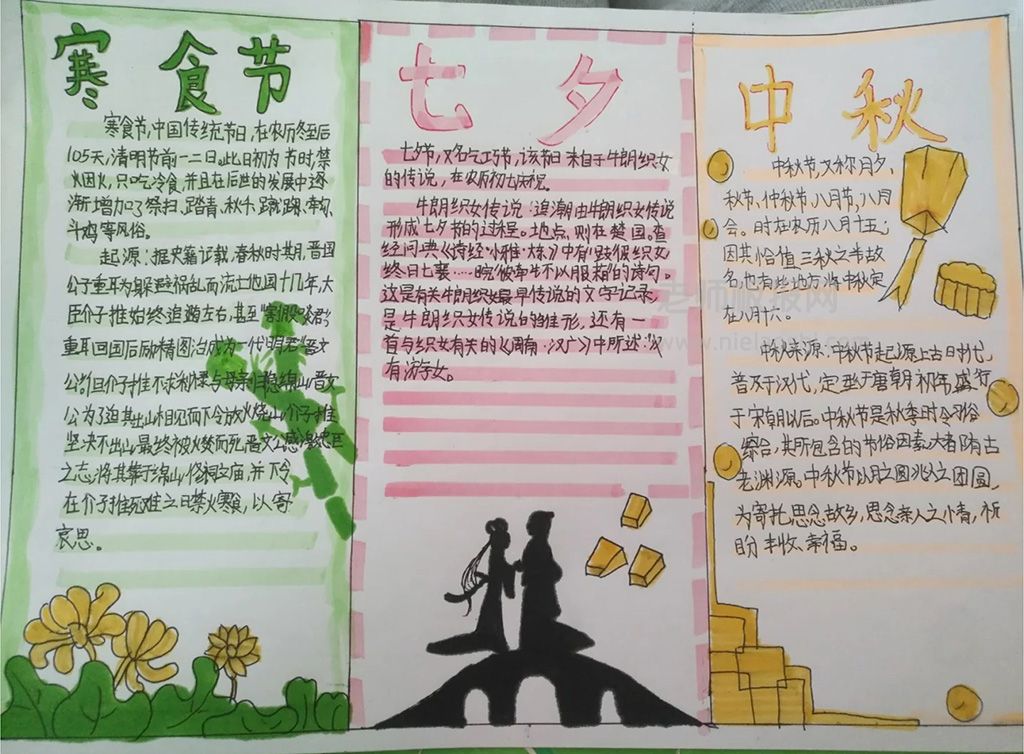 寒食节
寒食节,中国传统节日,在农历冬至后
105天,清明节前一二日。此日初为节时,禁
火,只吃冷食,并且在后世的发展中逐
渐增加了祭扫、踏青、秋千、蹴踘、
斗鸡等风俗。
起源:据史籍记载,春秋时期,晋国
公子重耳为躲避祸乱而流亡他国十九年,大
臣介子推始终追随左右,甚至“割股啖君”
重耳回国后励精图治,成为一代明君“晋文
公”。但介子推不求利禄,与母亲归隐绵山,晋文
公为了迫其出山相见而下令放火烧山,介子推
坚决不出山,最终被火焚而死,晋文公感
之志,将其葬于绵山,修祠立庙,并下令
在介子推死难之日禁火寒食,以寄
哀思。
七夕
七夕节,又名乞巧节,该节日来自于牛朗织女
的传说,在农历初七庆祝。
牛朗织女传说:追溯由牛朗织女传说
形成七夕节的过程。地点,则在楚国。查
经问典《诗经·小雅·》中有“跂彼织女
终日七襄……睆彼牵牛不以服箱”的诗句。
这是有关牛朗织女最早传说的文字记录,
是牛朗织女传说的雏形,还有一
首与织女有关的《周南·汉广》中所述“汉
有游女。
中秋
中秋节,又称月夕、
秋节、仲秋节、八月节、八月
会。时在农历八月十五;
因其恰值三秋之半故
名,也有些地方将中秋定
在八月十六。
中秋来源:中秋节起源上古时代,
普及于汉代,定型于唐朝初年,盛行
于宋朝以后。中秋节是秋季时令习俗
综合,其所包含的节俗因素,大都有古
老渊源。中秋节以月之圆兆人之团圆,
为寄托思念故乡,思念亲人之情,祈
盼丰收、幸福。
老师板报网